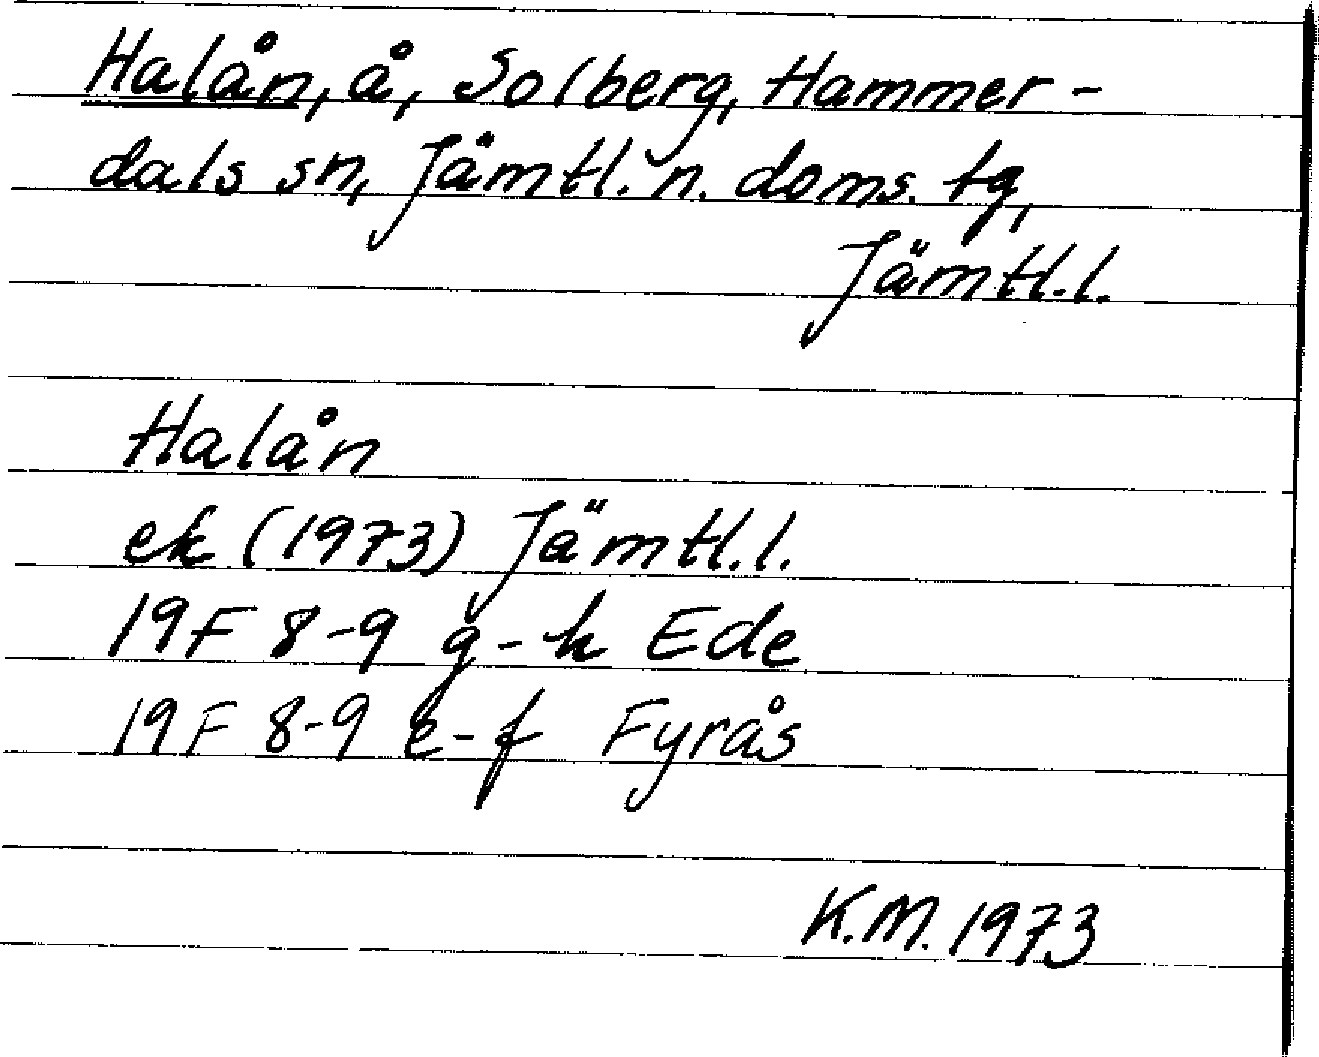 Halån, å, Solberg, Hammer-
dals sn, Jämtl. n. doms. tg,
Jämtl. l.
Halån
ek (1973) Jämtl. l.
19F 8-9 g-h Ede
19F 8-9 e-f Fyrås
K.M. 1973